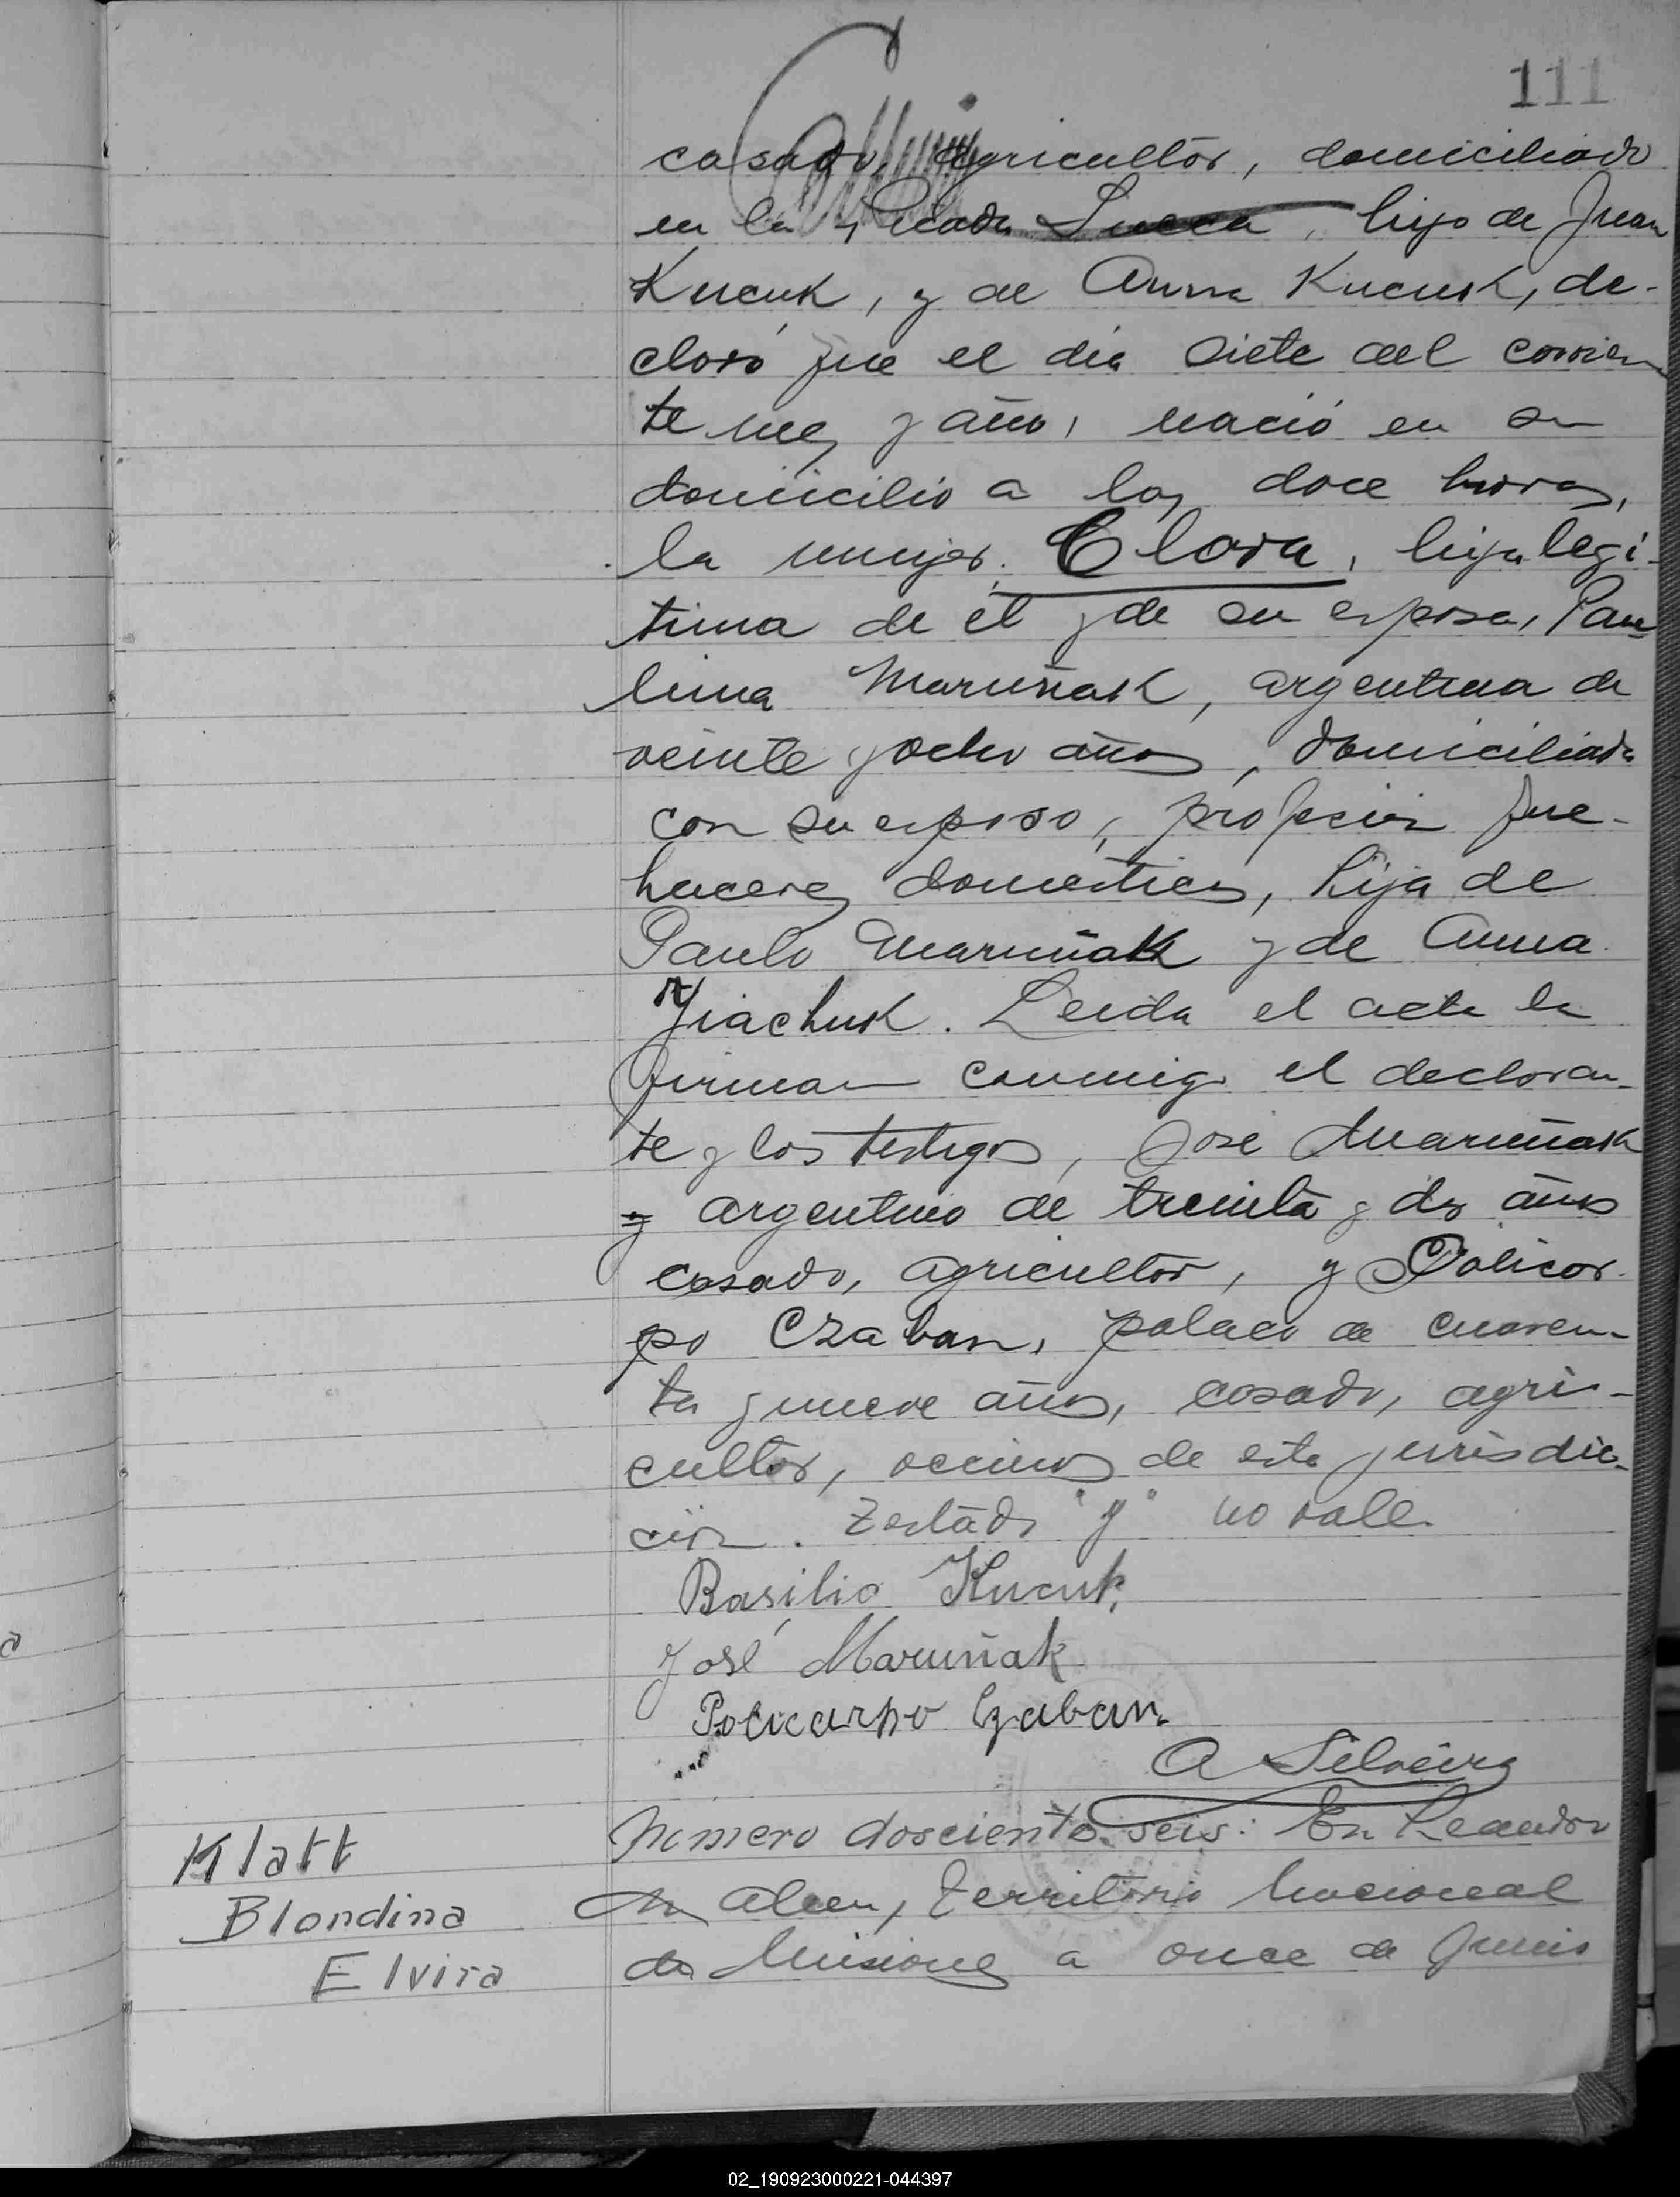 111
casado, agricultor, domiciliado
en la Picada Sueca, hijo de Juan
Kucuk, y de Anna Kucuk, de-
claró que el día siete del corrien-
te mes y año, nació en su
domicilio a las doce horas,
la mujer: Clara, hija legi-
tima de él y de su esposa, Pau-
lina Maruñak, argentina de
veinte y ocho años, domiciliada
con su esposo, profesión que-
haceres domesticos, hija de
Paulo Maruñak y de Anna
. Leida el acta la
firman conmigo el declaran-
te y los testigos, José Maruñak
y argentino de treinta y dos años
casado, agricultor, y Policar-
po Czaban, polaco de cuaren-
ta y nueve años, casado, agri-
cultor, vecinos de esta jurisdic-
ción. Testado "y" no vale.
Basilio Kucuk
José Maruñak
Policarpo Czaban
A Silveira
Klatt
Blondina
Elvira
Número doscientos seis: En Leandro
N. Alem, Territorio Nacional
de Misiones a once de Junio
02_190923000221-044397